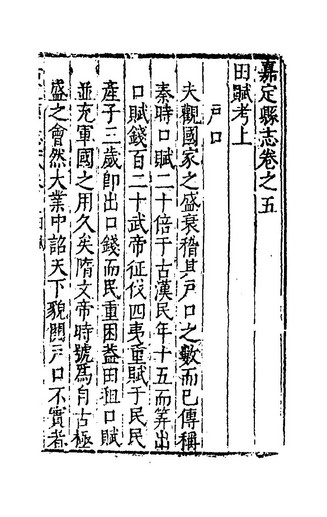 嘉定縣志卷之五
田賦考上
戶口
夫觀國家之盛衰稽其戶口之數而已傳稱
秦時口賦二十倍于古漢民年十五而筭出
口賦錢百二十武帝征伐四夷重賦于民民
產子三歲卽出口錢而民重困葢田租口賦
並充軍國之用久矣隋文帝時號爲自古極
盛之會然大業中詔天下貌閱戶口不實者